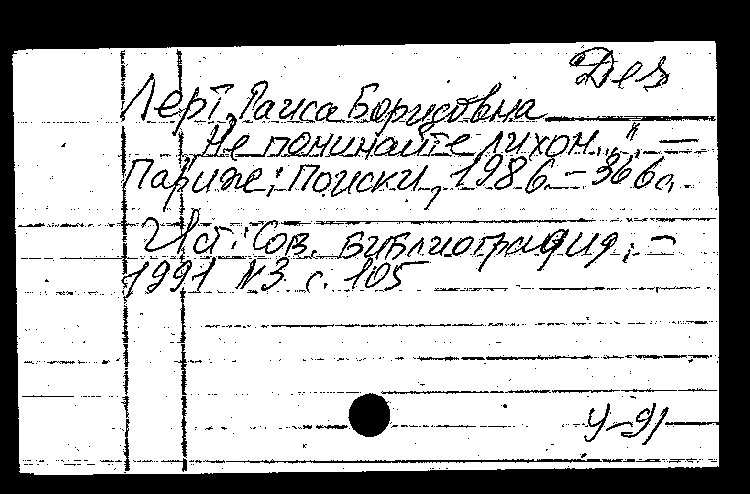 Дез
Лерт, Раиса Борисовна
"Не поминайте лихом..." —
Париж: Поиски, 1986. — 366 с.
Ист: Сов. библиография, —
1991 №3 с. 105
У-91